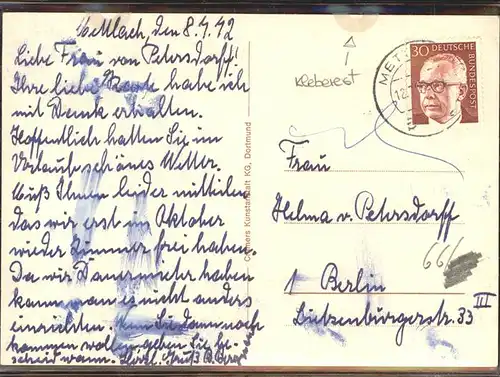 Mettlach, den 8.4.72
Liebe Frau von Petersdorff!
Ihre liebe Karte habe ich
mit Dank erhalten.
Hoffentlich hatten Sie im
Vorlauf schönes Wetter.
Muß Ihnen leider mitteilen
das wir erst im Oktober
wieder Zimmer frei haben.
Da wir Dauermieter haben
kann man es nicht anders
einrichten. Wenn Sie dann noch
kommen wollen, geben Sie be-
scheid wann. Herzl. Gruß B.
Cramers Kunstanstalt KG, Dortmund
Kleberest
30 DEUTSCHE
BUNDESPOST
MET
Frau
Helma v. Petersdorff
666
1 Berlin
Lietzenburgerstr. 33 III